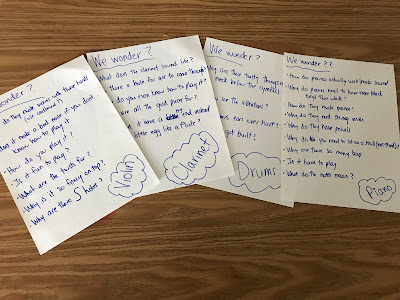 wonder?
do they make noises with their hands
(or costume?)
it make a bad noise if you don't
know how to play it
• How do you play it?
• Is it fun to play
• What are the teeth for?
• Why is it so fancy on top?
• Why are there S holes
Violin
We wonder?
What does the clarinet sound like?
there a hole for air to come through?
do you even know how to play it?
are all the gold piece for?
it have a end instead
little egg like a flute?
Clarinet
We wonder?
are there twisty things
for the vibration?
ears ever hurt?
get built?
Drums
We wonder??
• How do pianos actually work/make sound
• Why do pianos need to have their black
keys then white?
• How do they make pianos?
• Why do they need strings inside
• Why do they have pedals
• Why do you need to sit on a stool (not those)?
• Why are there so many keys
• Is it hard to play
• What do the notes mean?
Piano